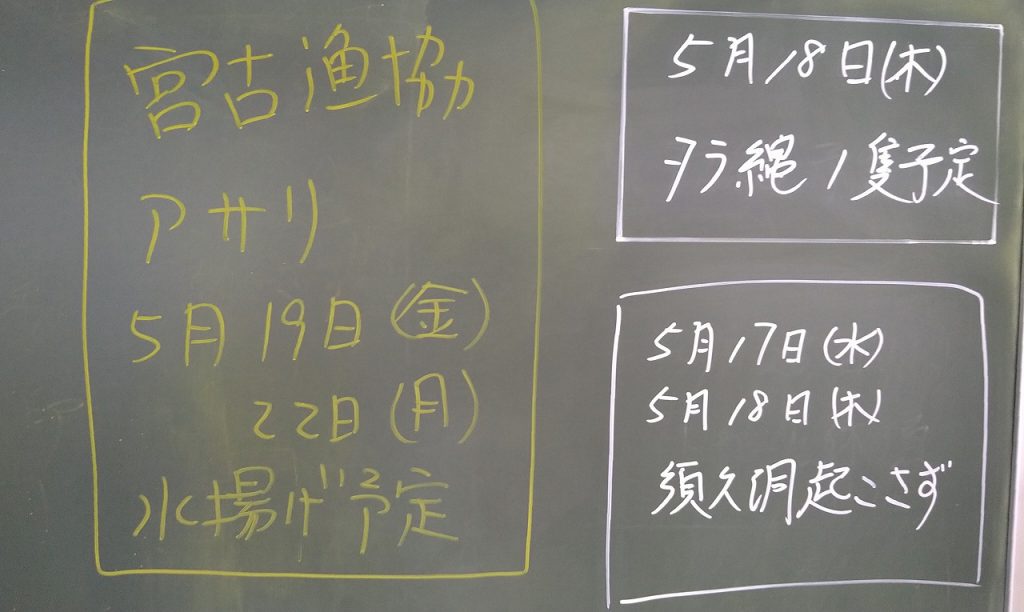 宮古漁協
アサリ
5月19日(金)
22日(月)
水揚げ予定
5月18日(木)
タラ縄1隻予定
5月17日(水)
5月18日(木)
須久洞起こさず